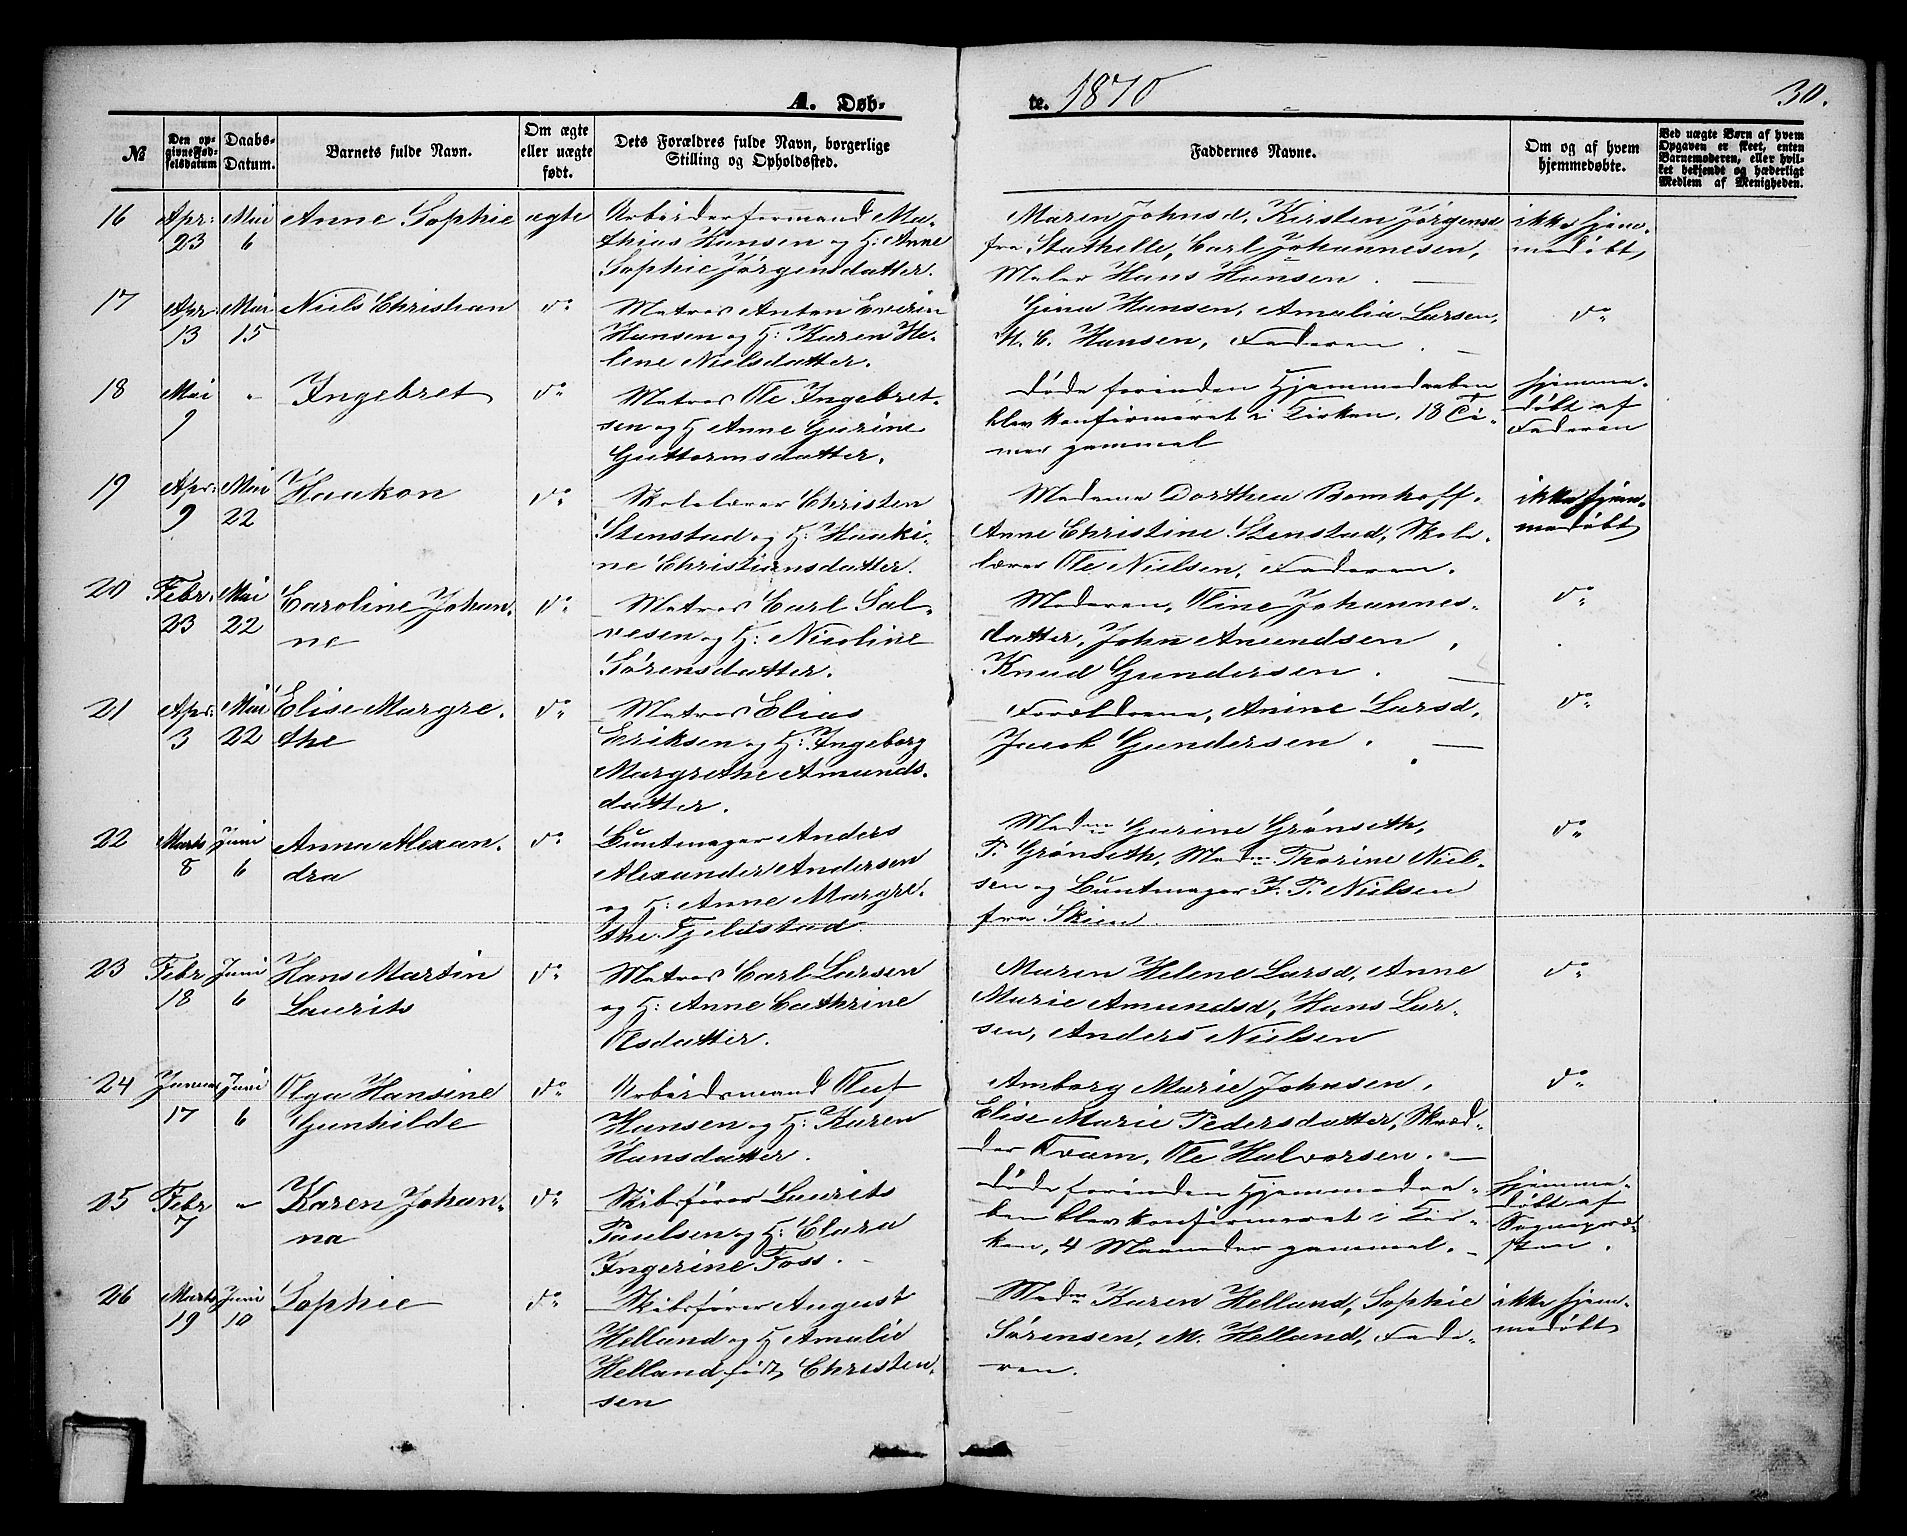 A. Døb-
te. 1870
30.
№
Den op-
givne Fød-
selsdatum
Daabs-
Datum.
Barnets fulde Navn.
Om ægte
eller uægte
født.
Dets Forældres fulde Navn, borgerlige
Stilling og Opholdssted.
Faddernes Navne.
Om og af hvem
hjemmedøbte.
Ved uægte Børn af hvem
Opgaven er skeet, enten
Barnemoderen, eller hvil-
ket bekjendt og hæderligt
Medlem af Menigheden.
16
Apr:
23
Mai
6
Anne Sophie
ægte
Arbeiderformand Ma-
thias Hansen og H: Anne
Sophie Jørgensdatter.
Maren Johnsd, Kirsten Jørgensd
fra Stathelle, Carl Johannesen,
Maler Hans Hansen.
ikke hjem-
medøbt
17
Apr:
13
Mai
15
Niels Christian
do
Matros Anton Everin
Hansen og H: Karen He-
lene Nielsdatter.
Gina Hansen, Amalie Larsen,
H. C. Hansen, Faderen.
do
18
Mai
9
"
Ingebret
do
Matros Ole Ingebret-
sen og H Anne Gurine
Guttormsdatter.
døde forinden Hjemmedaaben
blev konfirmeret i Kirken, 18 Ti-
mer gammel
hjemme-
døbt af
Faderen
19
Apr:
9
Mai
22
Haakon
do
Skolelærer Christen
Stenstad og H: Haaki-
ne Christiansdatter.
Madame Dorthea Bomhoff.
Anne Christine Stenstad, Skole-
lærer Ole Nielsen, Faderen.
ikke hjem-
medøbt
20
Febr.
23
Mai
22
Caroline Johan-
ne
do
Matros Carl Sal-
vesen og H: Nicoline
Sørensdatter.
Moderen, Oline Johannes-
datter, John Amundsen,
Knud Gundersen.
do
21
Apr:
3
Mai
22
Elise Margre-
the
do
Matros Elias
Eriksen og H: Ingeborg
Margrethe Amunds-
datter.
Forældrene, Anine Larsd,
Jacob Gundersen.
do
22
Marts
8
Juni
6
Anna Alexan-
dra
do
Buntmager Anders
Alexander Andersen
og H: Anne Margre-
the Fjeldstad
Madme Gurine Grønseth,
P. Grønseth, Madme Thorine Niel-
sen og Buntmager J. P. Nielsen
fra Skien.
do
23
Febr
18
Juni
6
Hans Martin
Laurits
do
Matros Carl Larsen
og H: Anne Cathrine
Olsdatter.
Maren Helene Larsd, Anne
Marie Amundsd, Hans Lar-
sen, Anders Nielsen
do
24
Januar
17
Juni
6
Olga Hansine
Gunhilde
do
Arbeidsmand Oluf
Hansen og H: Karen
Hansdatter.
Amborg Marie Johnsen,
Elise Marie Pedersdatter, Skræd-
der Kvam, Ole Halvorsen.
do
25
Febr
7
"
Karen Johan-
na
do
Skibsfører Laurits
Paulsen og H: Clara
Ingerine Foss.
døde forinden Hjemmedaa-
ben blev konfirmeret i Kir-
ken, 4 Maaneder gammel.
hjemme-
døbt af
Sognepræ-
sten.
26
Marts
19
Juni
10
Sophie
do
Skibsfører August
Helland og H Amalie
Helland født Christen-
sen
Madme Karen Helland, Sophie
Sørensen, M. Helland, Fade-
ren.
ikke hjem-
medøbt